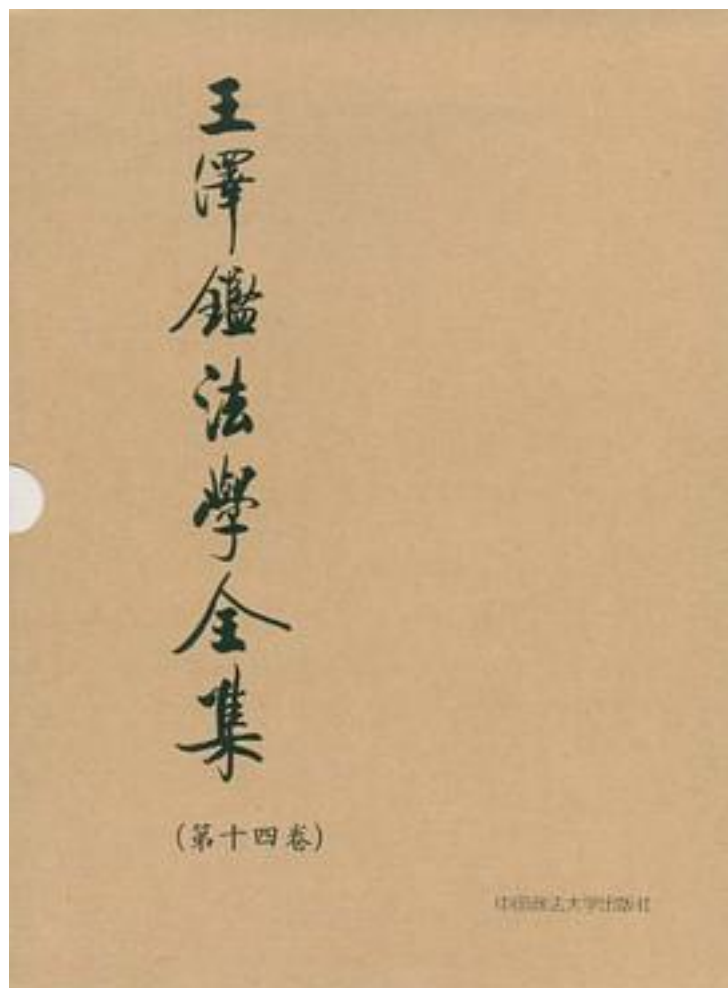 王澤鑑法學全集
(第十四卷)
中国政法大学出版社